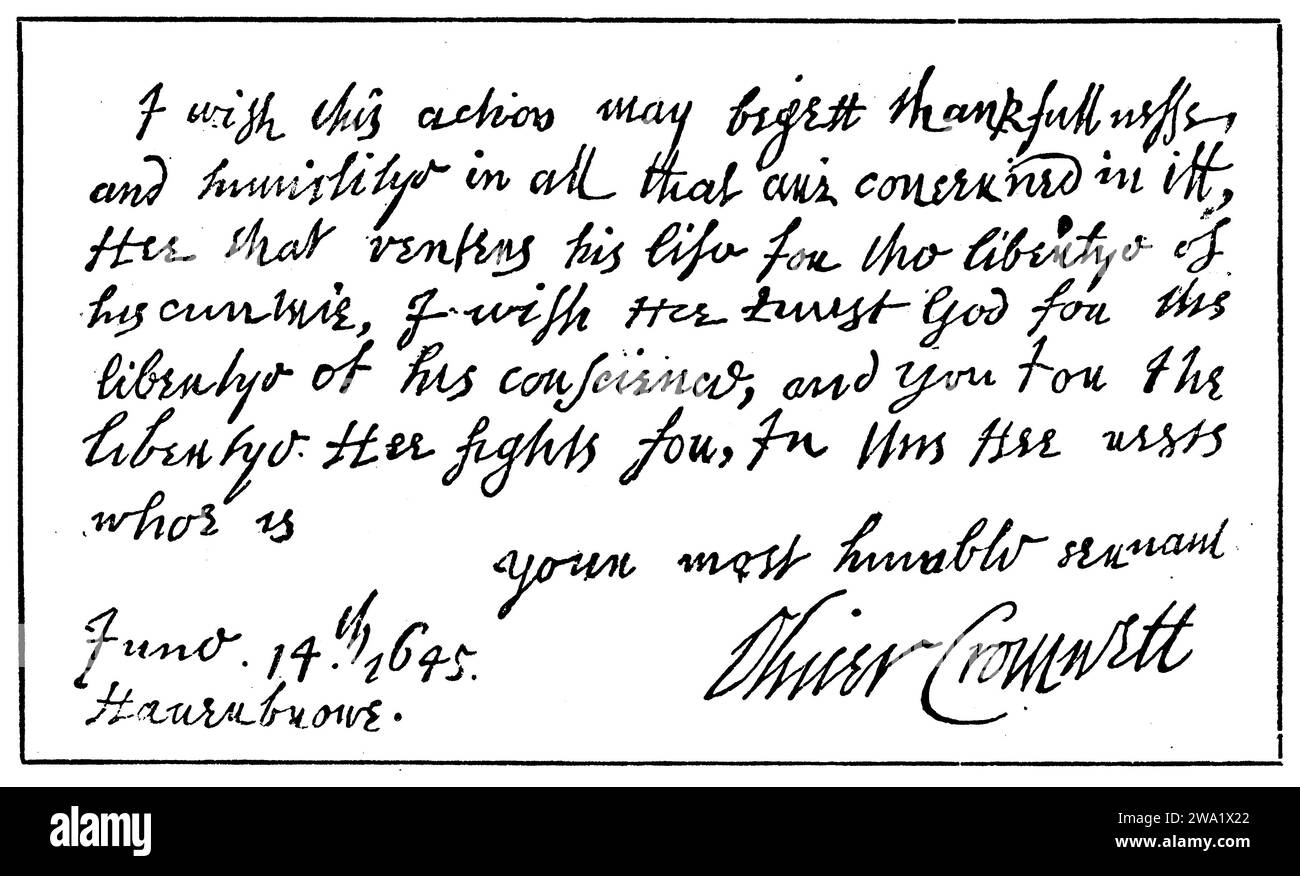 I wish this action may begett thankfullnesse,
and humilitye in all that are concerned in itt,
Hee that venters his life for the libertye of
his cuntrie, I wish Hee trust God for the
libertye of his conscience, and you for the
libertye Hee fights for, In this Hee rests
whoe is
your most humble servant
Oliver Cromwell
June. 14.th 1645.
Haverbrowe.
alamy
Image ID: 2WA1X22
www.alamy.com